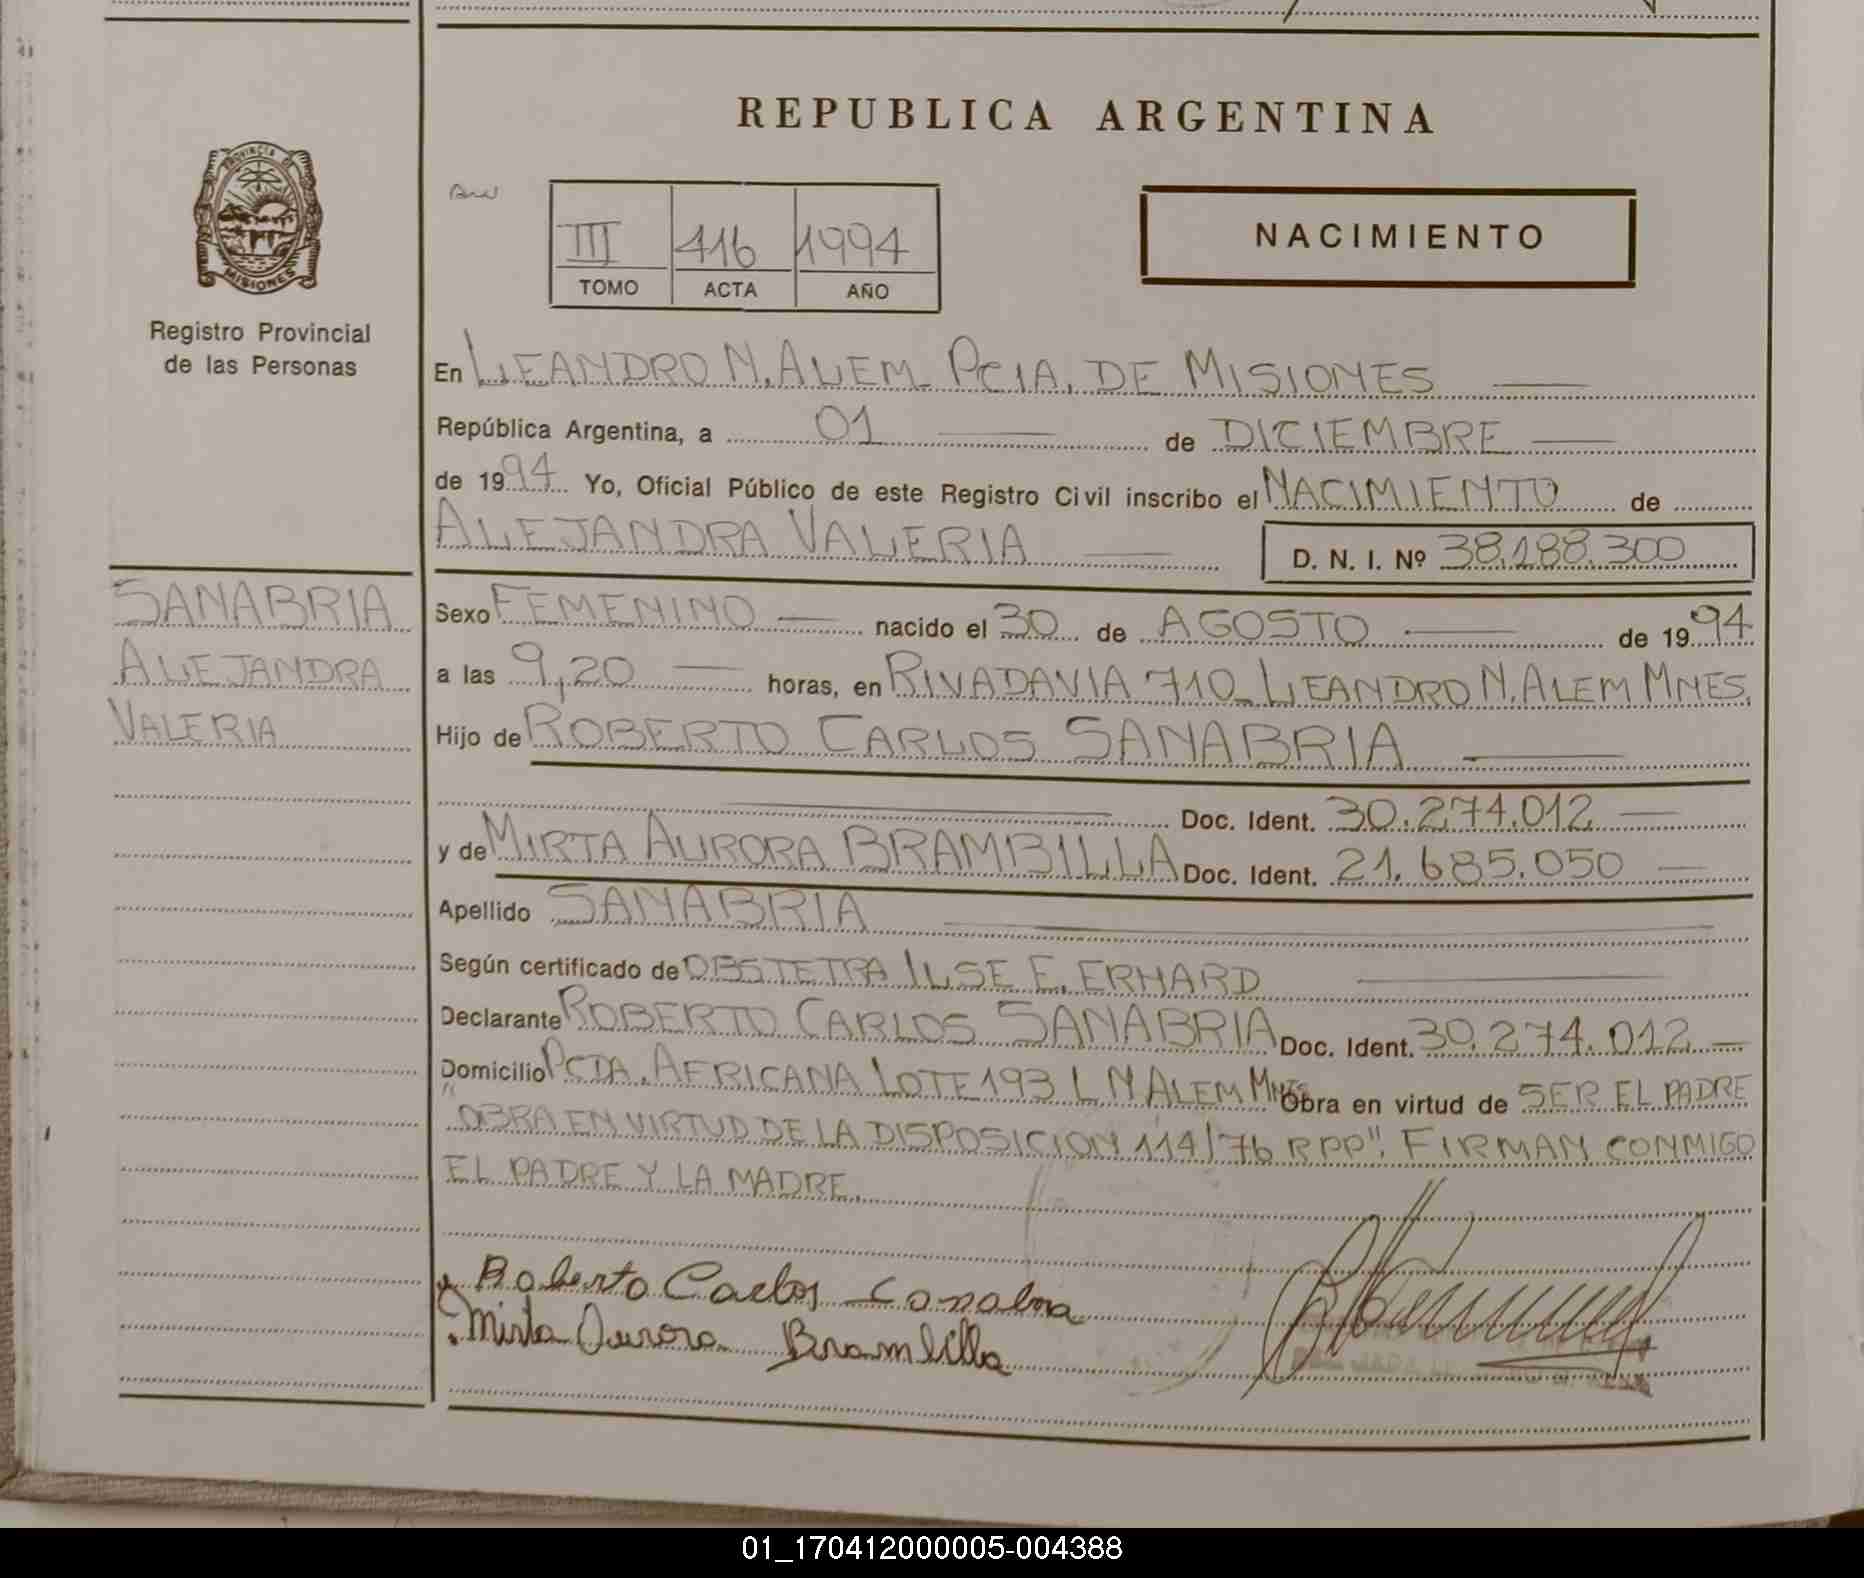 REPUBLICA ARGENTINA
PROVINCIA DE
MISIONES
Registro Provincial
de las Personas
III 416 1994
TOMO ACTA AÑO
NACIMIENTO
En LEANDRO N. ALEM PCIA. DE MISIONES
República Argentina, a 01 de DICIEMBRE
de 1994 Yo, Oficial Público de este Registro Civil inscribo el NACIMIENTO de
ALEJANDRA VALERIA D. N. I. Nº 38.188.300
SANABRIA
ALEJANDRA
VALERIA
Sexo FEMENINO nacido el 30 de AGOSTO de 1994
a las 9,20 horas, en RIVADAVIA 710 LEANDRO N. ALEM MNES.
Hijo de ROBERTO CARLOS SANABRIA
Doc. Ident. 30.274.012
y de MIRTA AURORA BRAMBILLA Doc. Ident. 21.685.050
Apellido SANABRIA
Según certificado de OBSTETRA ILSE E. ERHARD
Declarante ROBERTO CARLOS SANABRIA Doc. Ident. 30.274.012
Domicilio PCDA. AFRICANA LOTE 193 L N ALEM MNES Obra en virtud de SER EL PADRE
"OBRA EN VIRTUD DE LA DISPOSICION 114/76 RPP". FIRMAN CONMIGO
EL PADRE Y LA MADRE.
Roberto Carlos Sanabria
Mirta Aurora Brambilla
01_170412000005-004388